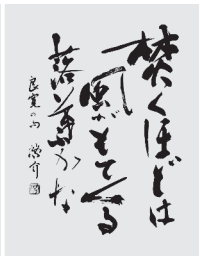 焚くほどは
風がもてくる
落葉かな
良寛の句